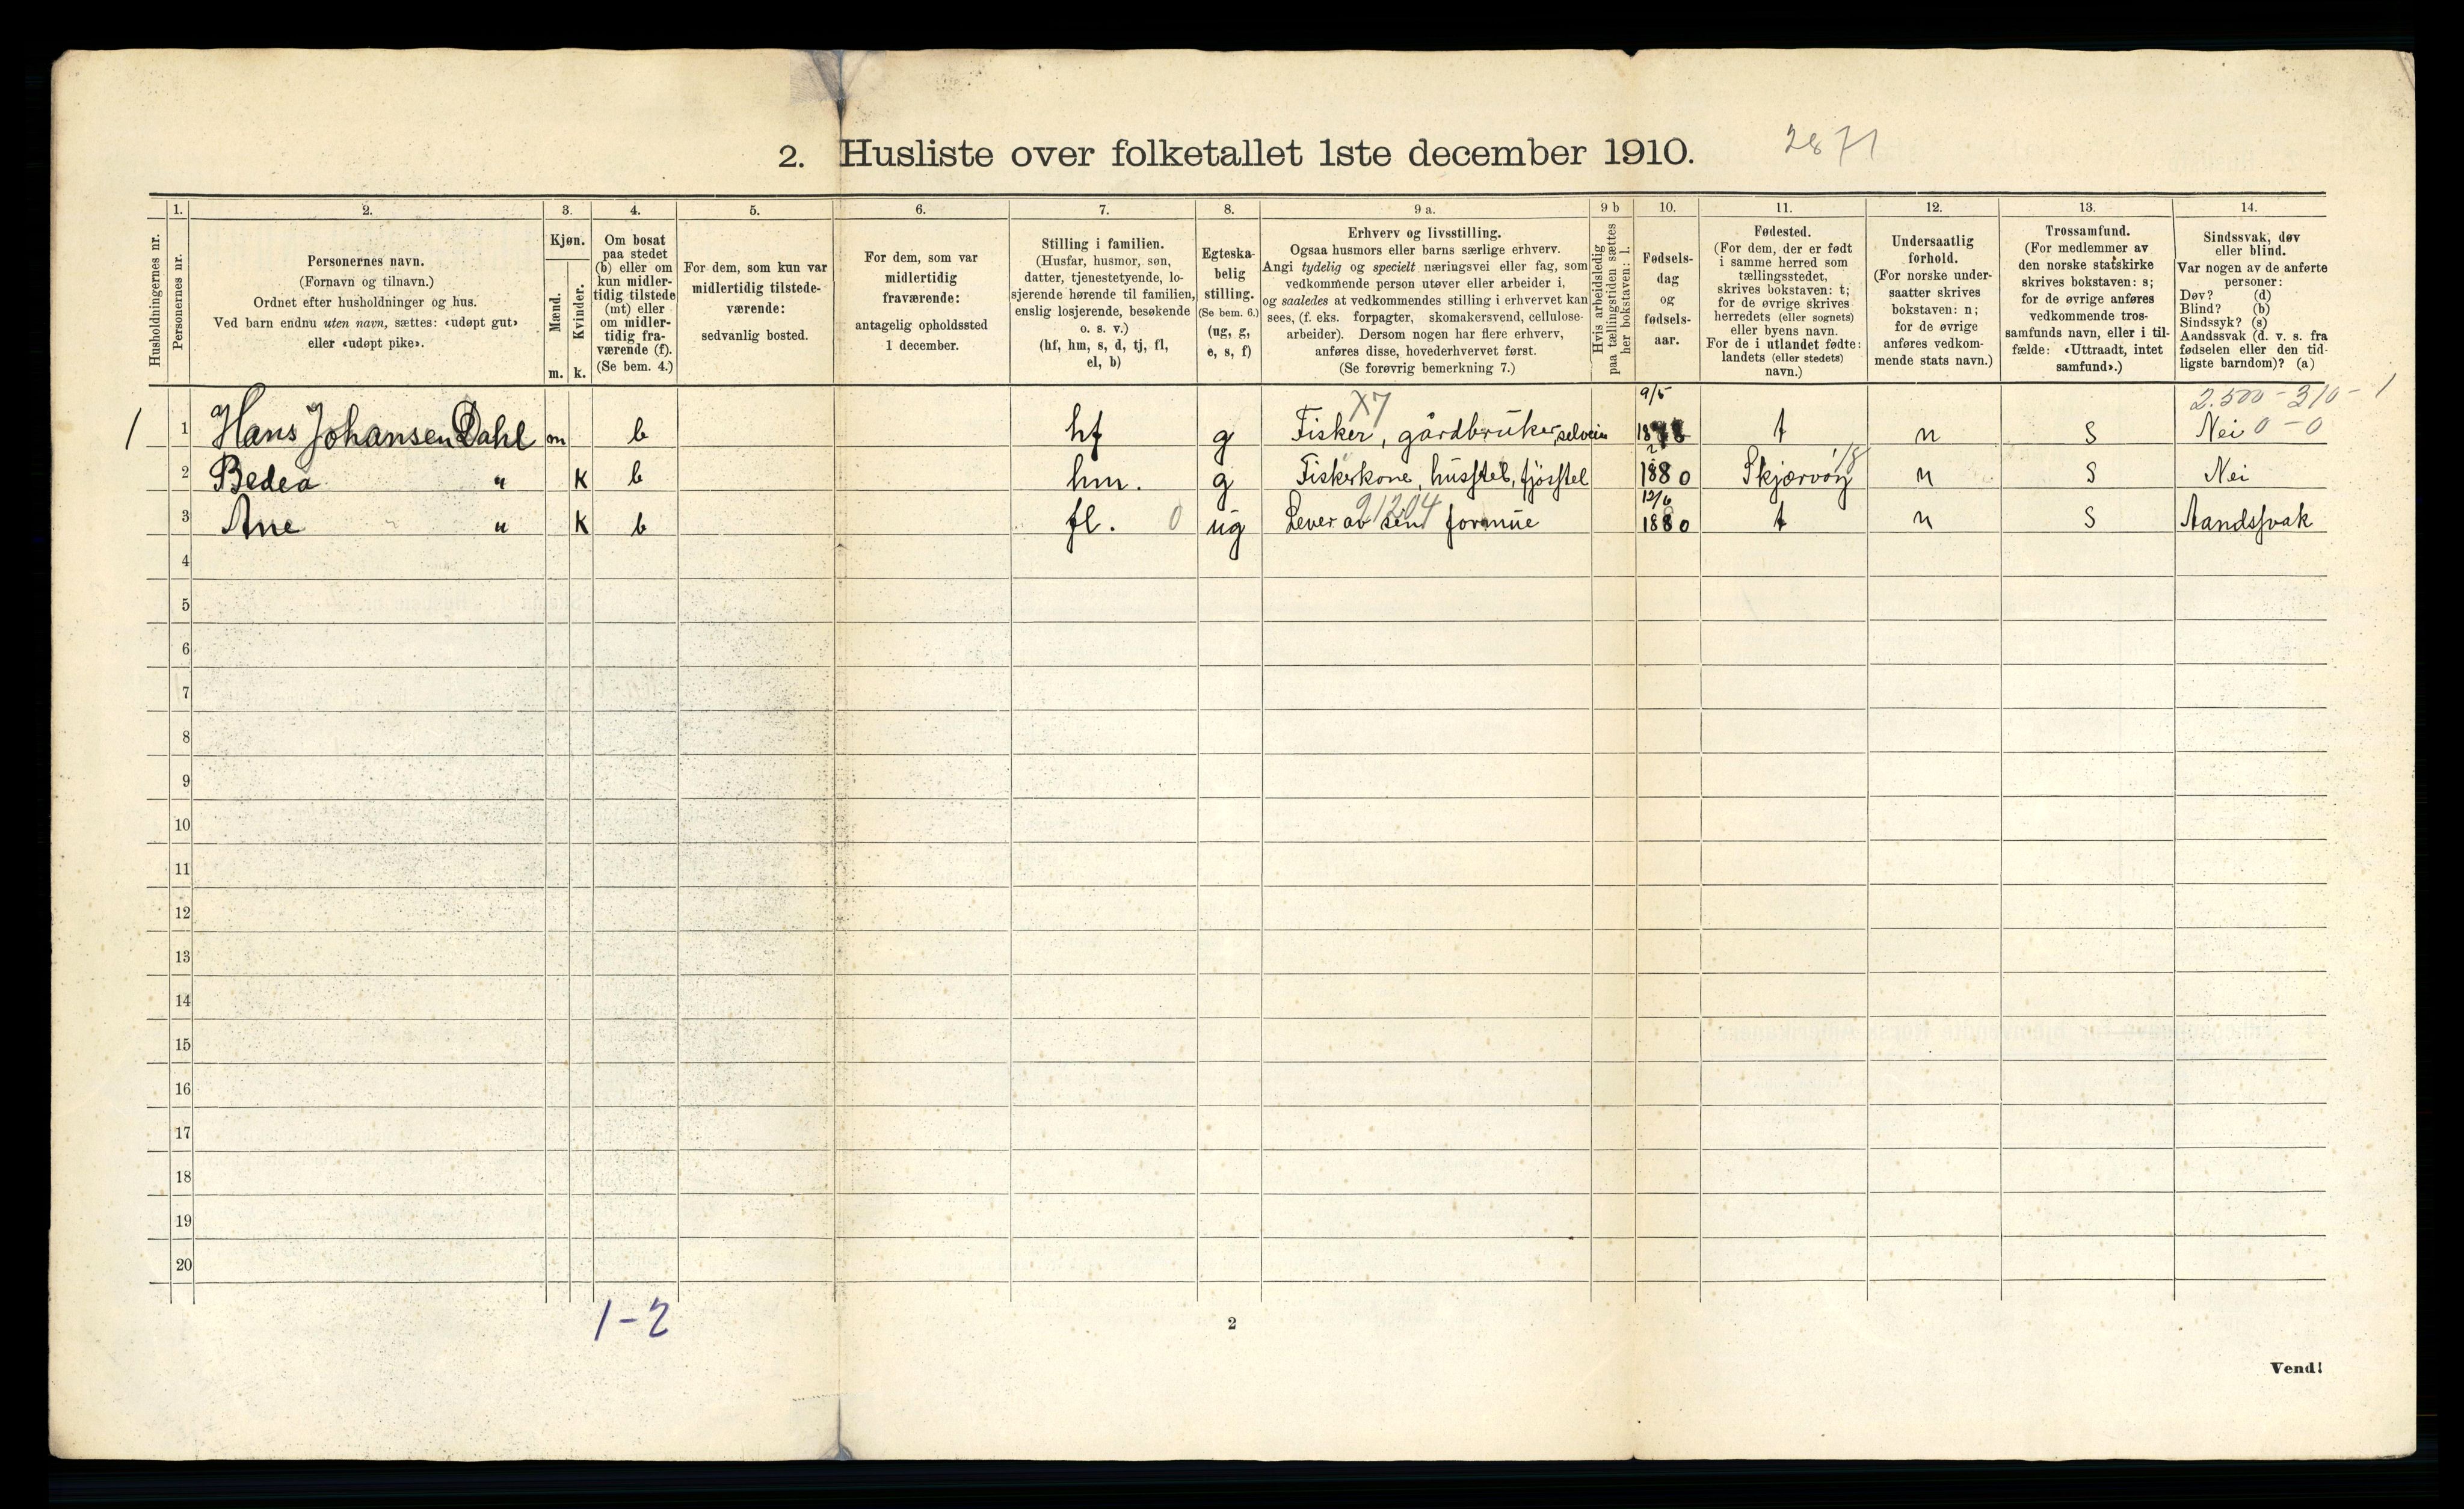 2. Husliste over folketallet 1ste december 1910. 2871
Husholdningernes nr.
1. Personernes nr.
2. Personernes navn.
(Fornavn og tilnavn.)
Ordnet efter husholdninger og hus.
Ved barn endnu uten navn, sættes: «udøpt gut»
eller «udøpt pike».
3. Kjøn.
Mænd. Kvinder.
m. k.
4. Om bosat
paa stedet
(b) eller om
kun midler-
tidig tilstede
(mt) eller
om midler-
tidig fra-
værende (f).
(Se bem. 4.)
5. For dem, som kun var
midlertidig tilstede-
værende:
sedvanlig bosted.
6. For dem, som var
midlertidig
fraværende:
antagelig opholdssted
1 december.
7. Stilling i familien.
(Husfar, husmor, søn,
datter, tjenestetyende, lo-
sjerende hørende til familien,
enslig losjerende, besøkende
o. s. v.)
(hf, hm, s, d, tj, fl,
el, b)
8. Egteska-
belig
stilling.
(Se bem. 6.)
(ug, g,
e, s, f)
9 a. Erhverv og livsstilling.
Ogsaa husmors eller barns særlige erhverv.
Angi tydelig og specielt næringsvei eller fag, som
vedkommende person utøver eller arbeider i,
og saaledes at vedkommendes stilling i erhvervet kan
sees, (f. eks. forpagter, skomakersvend, cellulose-
arbeider). Dersom nogen har flere erhverv,
anføres disse, hovederhvervet først.
(Se forøvrig bemerkning 7.)
9 b Hvis arbeidsledig
paa tællingstiden sættes
her bokstaven: l.
10. Fødsels-
dag
og
fødsels-
aar.
11. Fødested.
(For dem, der er født
i samme herred som
tællingsstedet,
skrives bokstaven: t;
for de øvrige skrives
herredets (eller sognets)
eller byens navn.
For de i utlandet fødte:
landets (eller stedets)
navn.)
12. Undersaatlig
forhold.
(For norske under-
saatter skrives
bokstaven: n;
for de øvrige
anføres vedkom-
mende stats navn.)
13. Trossamfund.
(For medlemmer av
den norske statskirke
skrives bokstaven: s;
for de øvrige anføres
vedkommende tros-
samfunds navn, eller i til-
fælde: «Uttraadt, intet
samfund».)
14. Sindssvak, døv
eller blind.
Var nogen av de anførte
personer:
Døv? (d)
Blind? (b)
Sindssyk? (s)
Aandssvak (d. v. s. fra
fødselen eller den tid-
ligste barndom)? (a)
X7 9/5 2.500 - 310 - 1
1 1 Hans Johansen Dahl m b hf g Fisker, gårdbruker, selveier t n s Nei 0 - 0
2 Bedea " k b hm. g Fiskerkone, husstel, fjøsstel 1880 Skjærvøy 18 n s Nei
21204 12/6
3 Ane " k b fl. 0 ug Lever av sin formue 1880 t n s Aandssvak
4
5
6
7
8
9
10
11
12
13
14
15
16
17
18
19
20
1-2
2
Vend!